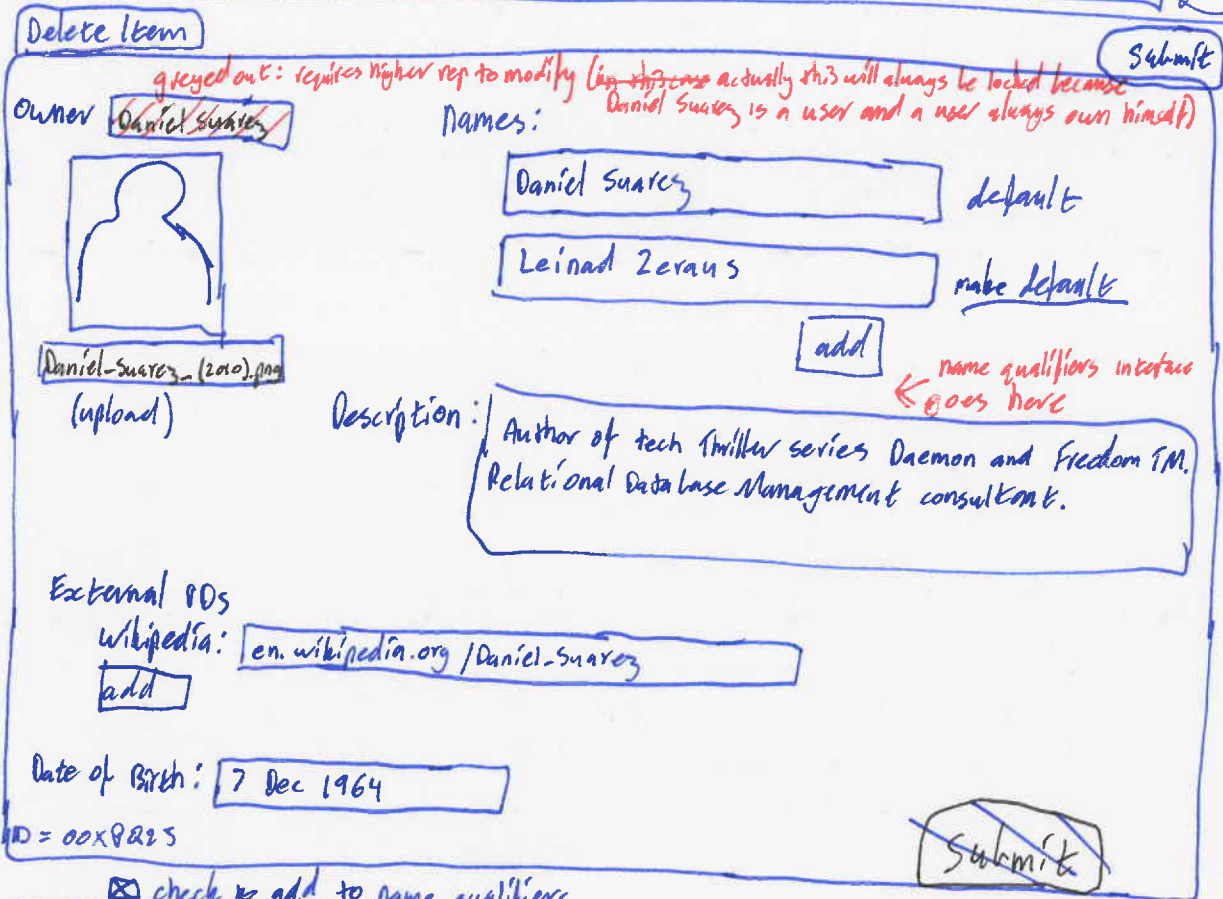 Delete Item
Submit
greyed out: requires higher rep to modify (in this case actually this will always be locked because
Daniel Suarez is a user and a user always own himself)
Owner Daniel Suarez
Names:
Daniel Suarez default
Leinad Zeraus make default
add
name qualifiers interface
goes here
Daniel_Suarez_(2010).png
(upload)
Description:
Author of tech Thriller series Daemon and Freedom TM.
Relational Database Management consultant.
External IDs
Wikipedia: en.wikipedia.org/Daniel_Suarez
add
Date of Birth: 7 Dec 1964
Submit
check to add to name qualifiers